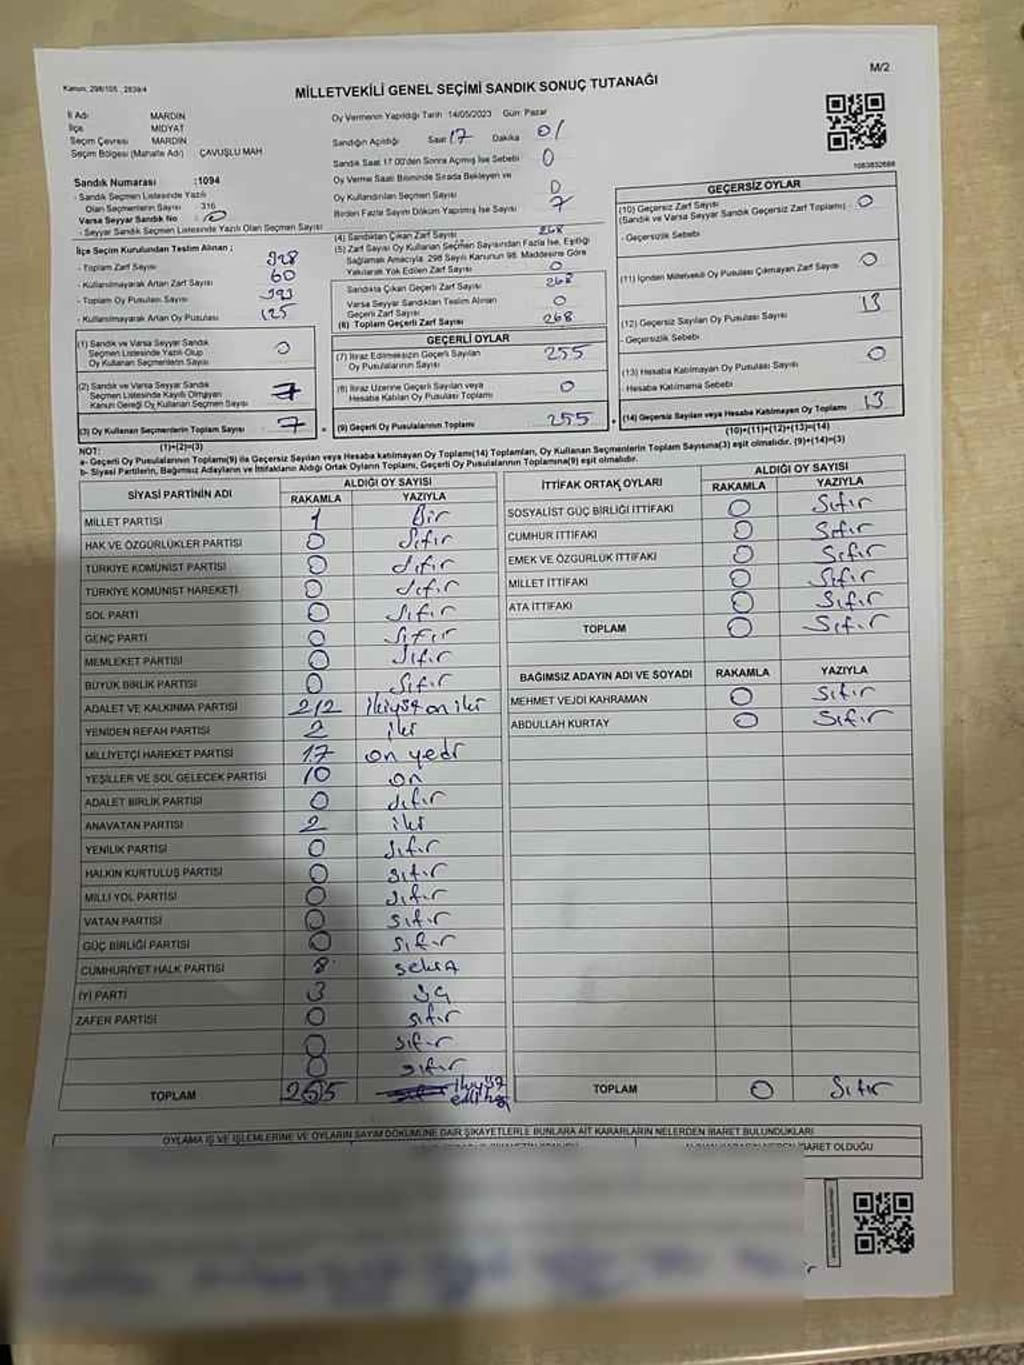 Kanun, 298/105, 2839/4
M/2
MİLLETVEKİLİ GENEL SEÇİMİ SANDIK SONUÇ TUTANAĞI
İl Adı MARDİN
İlçe MİDYAT
Seçim Çevresi MARDİN
Seçim Bölgesi (Mahalle Adı) ÇAVUŞLU MAH
Sandık Numarası :1094
- Sandık Seçmen Listesinde Yazılı
Olan Seçmenlerin Sayısı 316
Varsa Seyyar Sandık No : 0
- Seyyar Seçmen Listesinde Yazılı Olan Seçmen Sayısı
İlçe Seçim Kurulundan Teslim Alınan ;
- Toplam Zarf Sayısı 328
- Kullanılmayarak Artan Zarf Sayısı 60
- Toplam Oy Pusulası Sayısı 393
- Kullanılmayarak Artan Oy Pusulası 125
(1) Sandık ve Varsa Seyyar Sandık
Seçmen Listesinde Yazılı Olup
Oy Kullanan Seçmenlerin Sayısı 0
(2) Sandık ve Varsa Seyyar Sandık
Seçmen Listesinde Kayıtlı Olmayan
Kanun Gereği Oy Kullanan Seçmen Sayısı 7
(3) Oy Kullanan Seçmenlerin Toplam Sayısı 7
(1)+(2)=(3)
Oy Vermenin Yapıldığı Tarih 14/05/2023 Gün: Pazar
Sandığın Açıldığı Saat 17 Dakika 01
Sandık Saat 17:00'den Sonra Açmış İse Sebebi 0
Oy Verme Saati Bitiminde Sırada Bekleyen ve
Oy Kullandırılan Seçmen Sayısı 0
Birden Fazla Sayım Döküm Yapılmış İse Sayısı 7
(4) Sandıktan Çıkan Zarf Sayısı 268
(5) Zarf Sayısı Oy Kullanan Seçmen Sayısından Fazla İse, Eşitliği
Sağlamak Amacıyla, 298 Sayılı Kanunun 98. Maddesine Göre
Yakılarak Yok Edilen Zarf Sayısı 0
Sandıkta Çıkan Geçerli Zarf Sayısı 268
Varsa Seyyar Sandıktan Teslim Alınan
Geçerli Zarf Sayısı 0
(6) Toplam Geçerli Zarf Sayısı 268
GEÇERLİ OYLAR
(7) İtiraz Edilmeksizin Geçerli Sayılan
Oy Pusulalarının Sayısı 255
(8) İtiraz Üzerine Geçerli Sayılan veya
Hesaba Katılan Oy Pusulası Toplamı 0
(9) Geçerli Oy Pusulalarının Toplamı 255
1083832688
GEÇERSİZ OYLAR
(10) Geçersiz Zarf Sayısı 0
(Sandık ve Varsa Seyyar Sandık Geçersiz Zarf Toplamı)
- Geçersizlik Sebebi
(11) İçinden Milletvekili Oy Pusulası Çıkmayan Zarf Sayısı 0
(12) Geçersiz Sayılan Oy Pusulası Sayısı 13
- Geçersizlik Sebebi
(13) Hesaba Katılmayan Oy Pusulası Sayısı 0
Hesaba Katılmama Sebebi
(14) Geçersiz Sayılan veya Hesaba Katılmayan Oy Toplamı 13
(10)+(11)+(12)+(13)=(14)
NOT:
a- Geçerli Oy Pusulalarının Toplamı(9) ile Geçersiz Sayılan veya Hesaba katılmayan Oy Toplamı(14) Toplamları, Oy Kullanan Seçmenlerin Toplam Sayısına(3) eşit olmalıdır. (9)+(14)=(3)
b- Siyasi Partilerin, Bağımsız Adayların ve İttifakların Aldığı Ortak Oyların Toplamı, Geçerli Oy Pusulalarının Toplamına(9) eşit olmalıdır.
SİYASİ PARTİNİN ADI ALDIĞI OY SAYISI
RAKAMLA YAZIYLA
MİLLET PARTİSİ 1 Bir
HAK VE ÖZGÜRLÜKLER PARTİSİ 0 Sıfır
TÜRKİYE KOMÜNİST PARTİSİ 0 Sıfır
TÜRKİYE KOMÜNİST HAREKETİ 0 Sıfır
SOL PARTİ 0 Sıfır
GENÇ PARTİ 0 Sıfır
MEMLEKET PARTİSİ 0 Sıfır
BÜYÜK BİRLİK PARTİSİ 0 Sıfır
ADALET VE KALKINMA PARTİSİ 212 ikiyüz on iki
YENİDEN REFAH PARTİSİ 2 iki
MİLLİYETÇİ HAREKET PARTİSİ 17 on yedi
YEŞİLLER VE SOL GELECEK PARTİSİ 10 on
ADALET BİRLİK PARTİSİ 0 sıfır
ANAVATAN PARTİSİ 2 iki
YENİLİK PARTİSİ 0 sıfır
HALKIN KURTULUŞ PARTİSİ 0 sıfır
MİLLİ YOL PARTİSİ 0 sıfır
VATAN PARTİSİ 0 sıfır
GÜÇ BİRLİĞİ PARTİSİ 0 sıfır
CUMHURİYET HALK PARTİSİ 8 sekiz
İYİ PARTİ 3 üç
ZAFER PARTİSİ 0 sıfır
0 sıfır
0 sıfır
TOPLAM 255 ikiyüz
elli beş
İTTİFAK ORTAK OYLARI ALDIĞI OY SAYISI
RAKAMLA YAZIYLA
SOSYALİST GÜÇ BİRLİĞİ İTTİFAKI 0 Sıfır
CUMHUR İTTİFAKI 0 Sıfır
EMEK VE ÖZGÜRLÜK İTTİFAKI 0 Sıfır
MİLLET İTTİFAKI 0 Sıfır
ATA İTTİFAKI 0 Sıfır
TOPLAM 0 Sıfır
BAĞIMSIZ ADAYIN ADI VE SOYADI RAKAMLA YAZIYLA
MEHMET VEJDİ KAHRAMAN 0 Sıfır
ABDULLAH KURTAY 0 Sıfır
TOPLAM 0 Sıfır
OYLAMA İŞ VE İŞLEMLERİNE VE OYLARIN SAYIM DÖKÜMÜNE DAİR ŞİKAYETLERLE BUNLARA AİT KARARLARIN NELERDEN İBARET BULUNDUKLARI
İBARET OLDUĞU